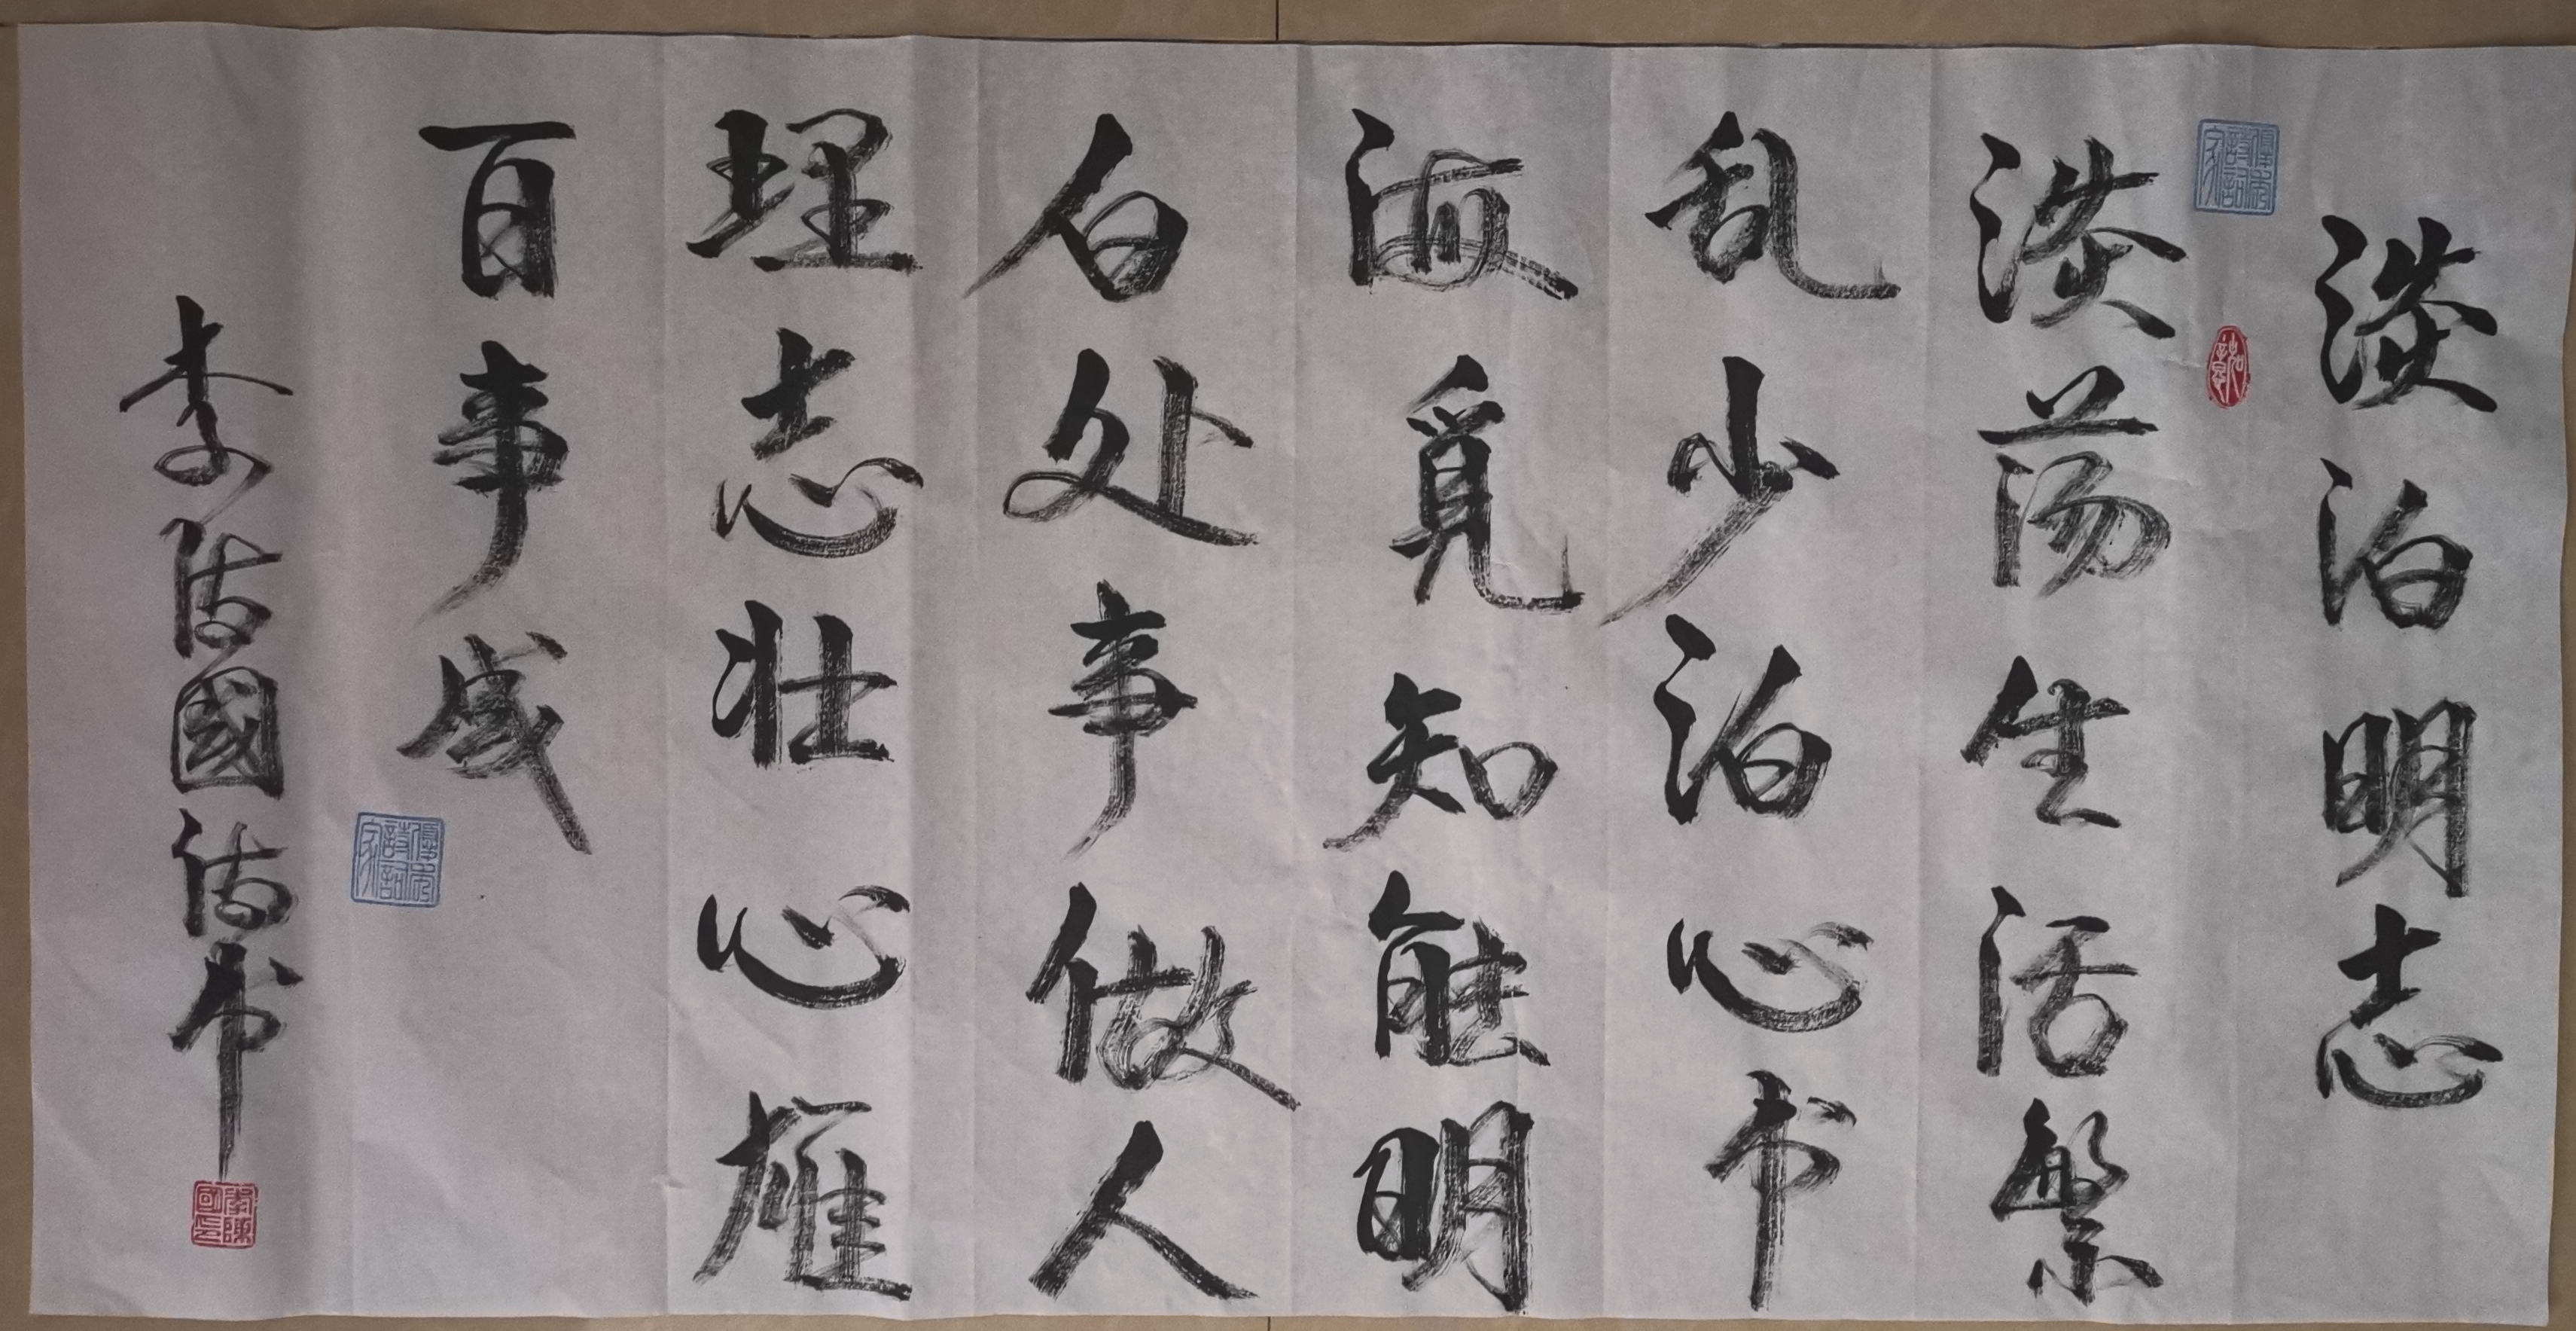 淡泊明志
淡荡生活繁
乱少泊心书
海觅知能明
白处事做人
理志壮心雄
百事成
李陈國诗书